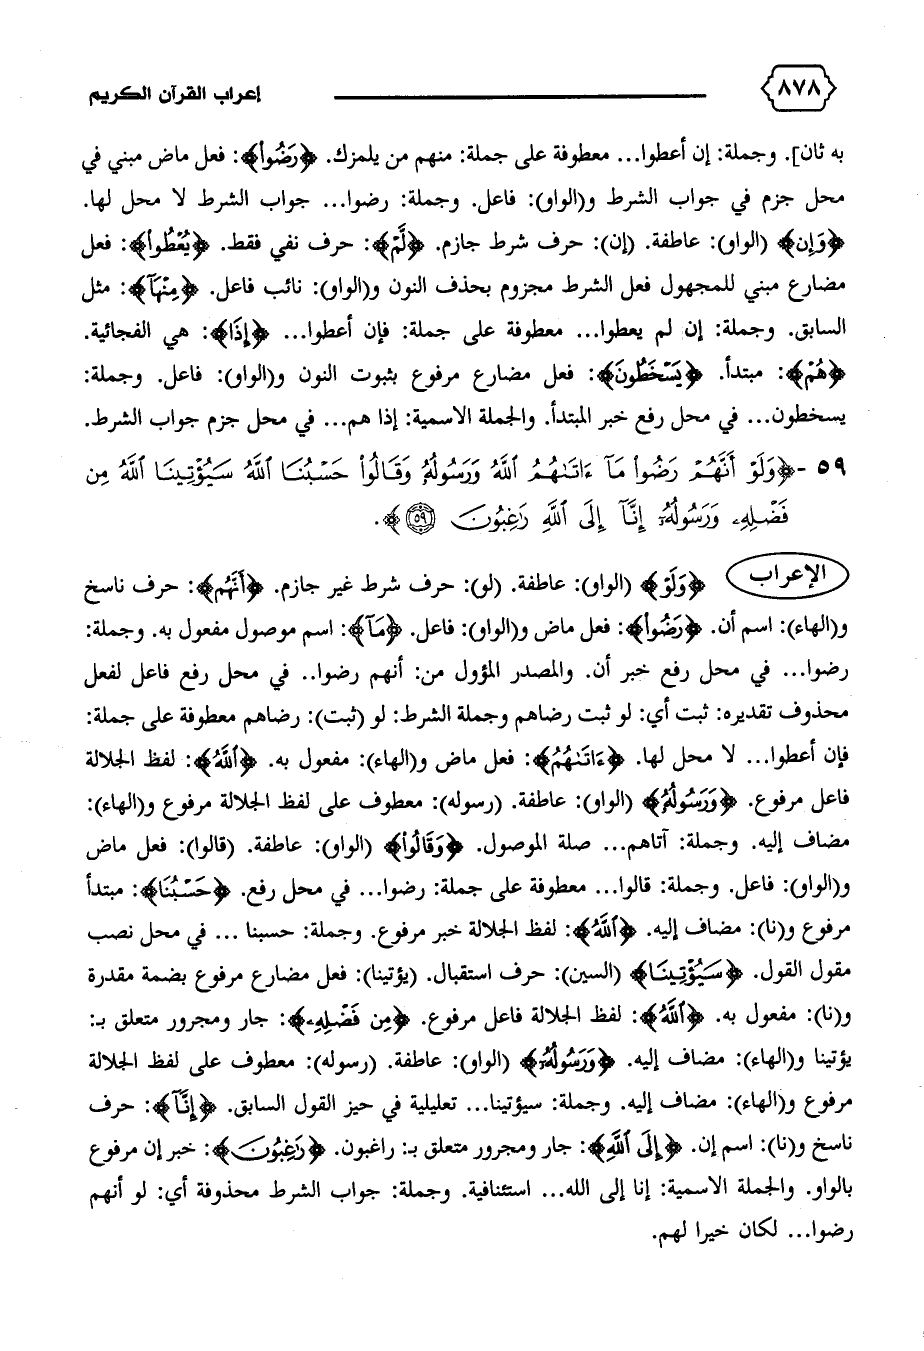 ٨٧٨ إعراب القرآن الكريم
به ثان]. وجملة: إن أعطوا... معطوفة على جملة: منهم من يلمزك. ﴿رَضُوا۟﴾: فعل ماض مبني في
محل جزم في جواب الشرط و(الواو): فاعل. وجملة: رضوا... جواب الشرط لا محل لها.
﴿وَإِن﴾ (الواو): عاطفة. (إن): حرف شرط جازم. ﴿لَّمْ﴾: حرف نفي فقط. ﴿يُعْطَوْا۟﴾: فعل
مضارع مبني للمجهول فعل الشرط مجزوم بحذف النون و(الواو): نائب فاعل. ﴿مِنْهَآ﴾: مثل
السابق. وجملة: إن لم يعطوا... معطوفة على جملة: فإن أعطوا... ﴿إِذَا﴾: هي الفجائية.
﴿هُمْ﴾: مبتدأ. ﴿يَسْخَطُونَ﴾: فعل مضارع مرفوع بثبوت النون و(الواو): فاعل. وجملة:
يسخطون... في محل رفع خبر المبتدأ. والجملة الاسمية: إذا هم... في محل جزم جواب الشرط.
٥٩ -﴿وَلَوْ أَنَّهُمْ رَضُوا۟ مَآ ءَاتَىٰهُمُ ٱللَّهُ وَرَسُولُهُۥ وَقَالُوا۟ حَسْبُنَا ٱللَّهُ سَيُؤْتِينَا ٱللَّهُ مِن
فَضْلِهِۦ وَرَسُولُهُۥٓ إِنَّآ إِلَى ٱللَّهِ رَٰغِبُونَ ٥٩﴾.
الإعراب ﴿وَلَوْ﴾ (الواو): عاطفة. (لو): حرف شرط غير جازم. ﴿أَنَّهُم﴾: حرف ناسخ
و(الهاء): اسم أن. ﴿رَضُوا۟﴾: فعل ماض و(الواو): فاعل. ﴿مَآ﴾: اسم موصول مفعول به. وجملة:
رضوا... في محل رفع خبر أن. والمصدر المؤول من: أنهم رضوا.. في محل رفع فاعل لفعل
محذوف تقديره: ثبت أي: لو ثبت رضاهم وجملة الشرط: لو (ثبت): رضاهم معطوفة على جملة:
فإن أعطوا... لا محل لها. ﴿ءَاتَىٰهُمُ﴾: فعل ماض و(الهاء): مفعول به. ﴿ٱللَّهُ﴾: لفظ الجلالة
فاعل مرفوع. ﴿وَرَسُولُهُۥ﴾ (الواو): عاطفة. (رسوله): معطوف على لفظ الجلالة مرفوع و(الهاء):
مضاف إليه. وجملة: آتاهم... صلة الموصول. ﴿وَقَالُوا۟﴾ (الواو): عاطفة. (قالوا): فعل ماض
و(الواو): فاعل. وجملة: قالوا... معطوفة على جملة: رضوا... في محل رفع. ﴿حَسْبُنَا﴾: مبتدأ
مرفوع و(نا): مضاف إليه. ﴿ٱللَّهُ﴾: لفظ الجلالة خبر مرفوع. وجملة: حسبنا ... في محل نصب
مقول القول. ﴿سَيُؤْتِينَا﴾ (السين): حرف استقبال. (يؤتينا): فعل مضارع مرفوع بضمة مقدرة
و(نا): مفعول به. ﴿ٱللَّهُ﴾: لفظ الجلالة فاعل مرفوع. ﴿مِن فَضْلِهِۦ﴾: جار ومجرور متعلق بـ:
يؤتينا و(الهاء): مضاف إليه. ﴿وَرَسُولُهُۥٓ﴾ (الواو): عاطفة. (رسوله): معطوف على لفظ الجلالة
مرفوع و(الهاء): مضاف إليه. وجملة: سيؤتينا... تعليلية في حيز القول السابق. ﴿إِنَّآ﴾: حرف
ناسخ و(نا): اسم إن. ﴿إِلَى ٱللَّهِ﴾: جار ومجرور متعلق بـ: راغبون. ﴿رَٰغِبُونَ﴾: خبر إن مرفوع
بالواو. والجملة الاسمية: إنا إلى الله... استئنافية. وجملة: جواب الشرط محذوفة أي: لو أنهم
رضوا... لكان خيرا لهم.